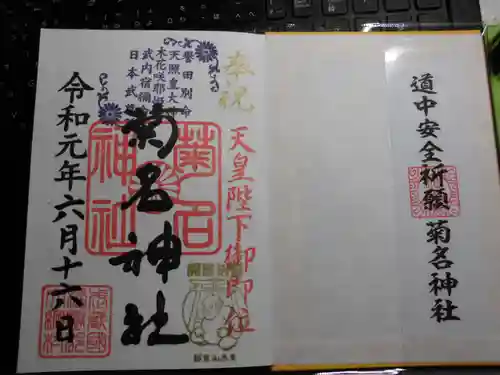 道中安全祈願 菊名神社
奉祝
天皇陛下御即位
誉田別命
天照皇大神
木花咲耶姫命
武内宿禰命
日本武尊
菊名神社
菊名神社
令和元年六月十六日